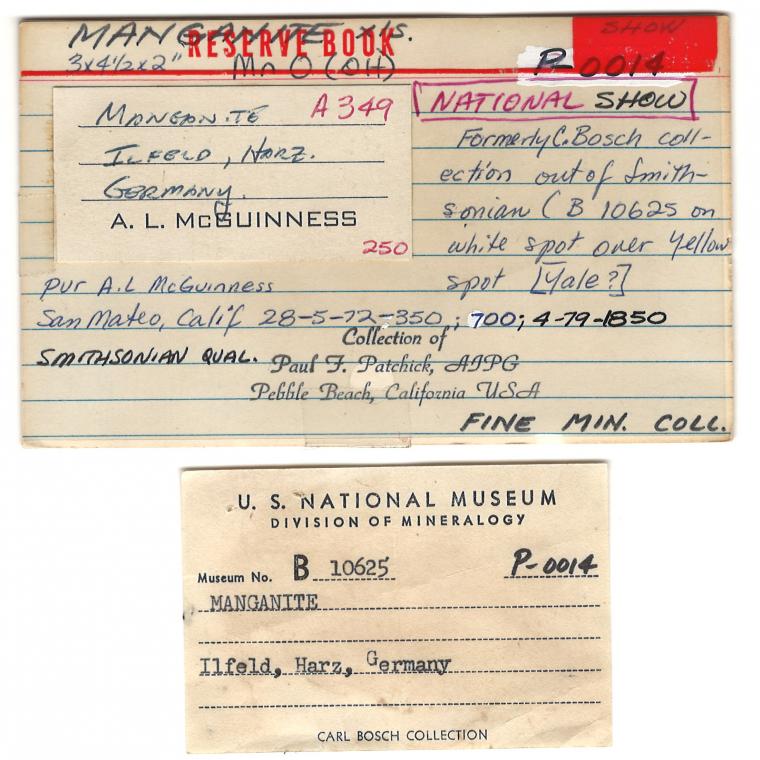 MANGANITE xls.
RESERVE BOOK
SHOW
3x4½x2"
MnO(OH)
P-0014
MANGANITE A349
ILFELD, HARZ.
GERMANY.
A. L. McGUINNESS
250
[NATIONAL SHOW]
Formerly C. Bosch coll-
ection out of Smith-
sonian (B 10625 on
white spot over yellow
spot [Yale?]
pur A.L McGuinness
San Mateo, Calif 28-5-72-350; 700; 4-79-1850
SMITHSONIAN QUAL.
Collection of
Paul F. Patchick, AIPG
Pebble Beach, California USA
FINE MIN. COLL.
U. S. NATIONAL MUSEUM
DIVISION OF MINERALOGY
Museum No. B 10625 P-0014
MANGANITE
Ilfeld, Harz, Germany
CARL BOSCH COLLECTION